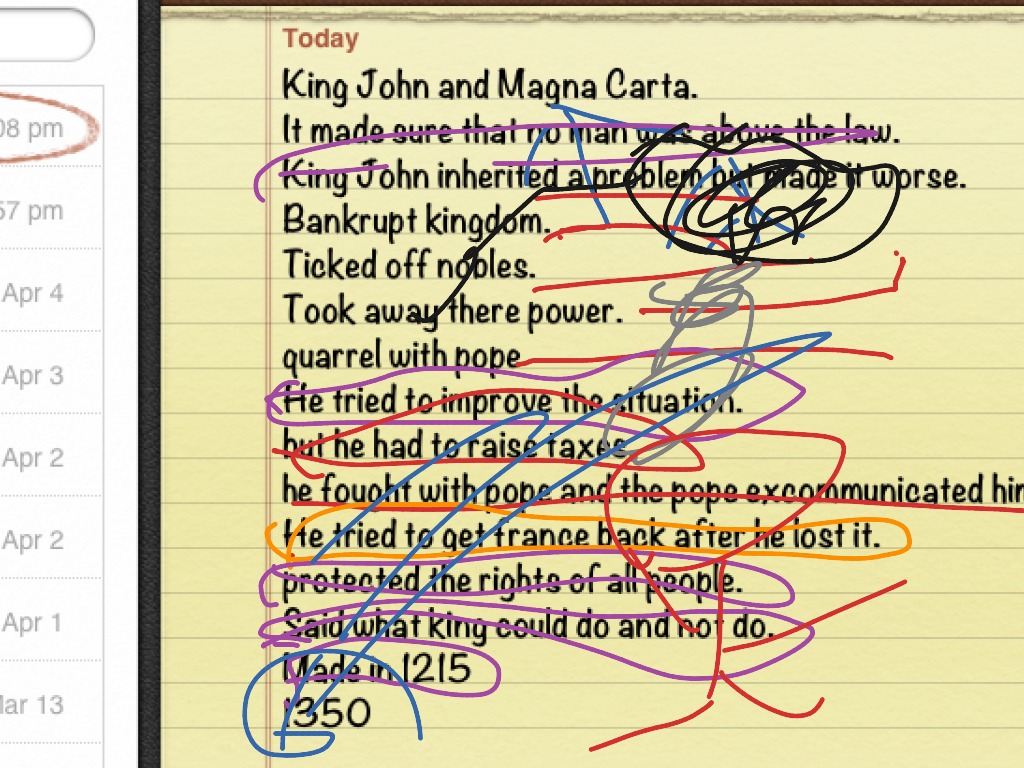 Today
King John and Magna Carta.
08 pm
It made sure that no man was above the law.
King John inherited a problem but made it worse.
57 pm
Bankrupt kingdom.
Ticked off nobles.
Apr 4
Took away there power.
quarrel with pope
Apr 3
He tried to improve the situation.
but he had to raise taxes
Apr 2
he fought with pope and the pope excommunicated him
Apr 2
He tried to get france back after he lost it.
protected the rights of all people.
Apr 1
Said what king could do and not do.
Made in 1215
Mar 13
1350